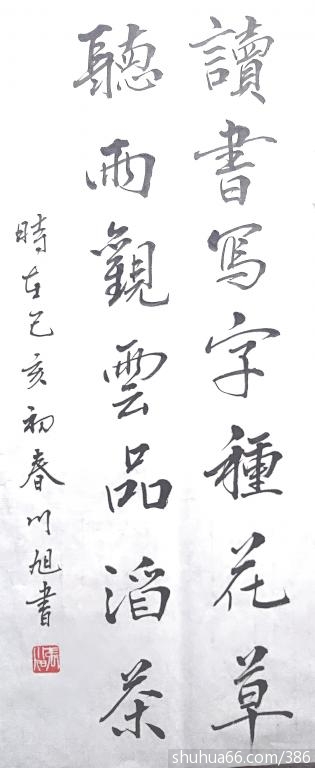 讀書写字種花草
聽雨觀雲品滔茶
時在己亥初春川旭書
shuhua66.com/386